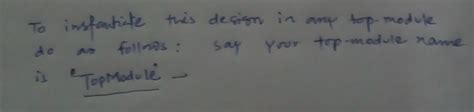 To instantiate this design in any top-module
do as follows : say your top-module name
is "TopModule" -